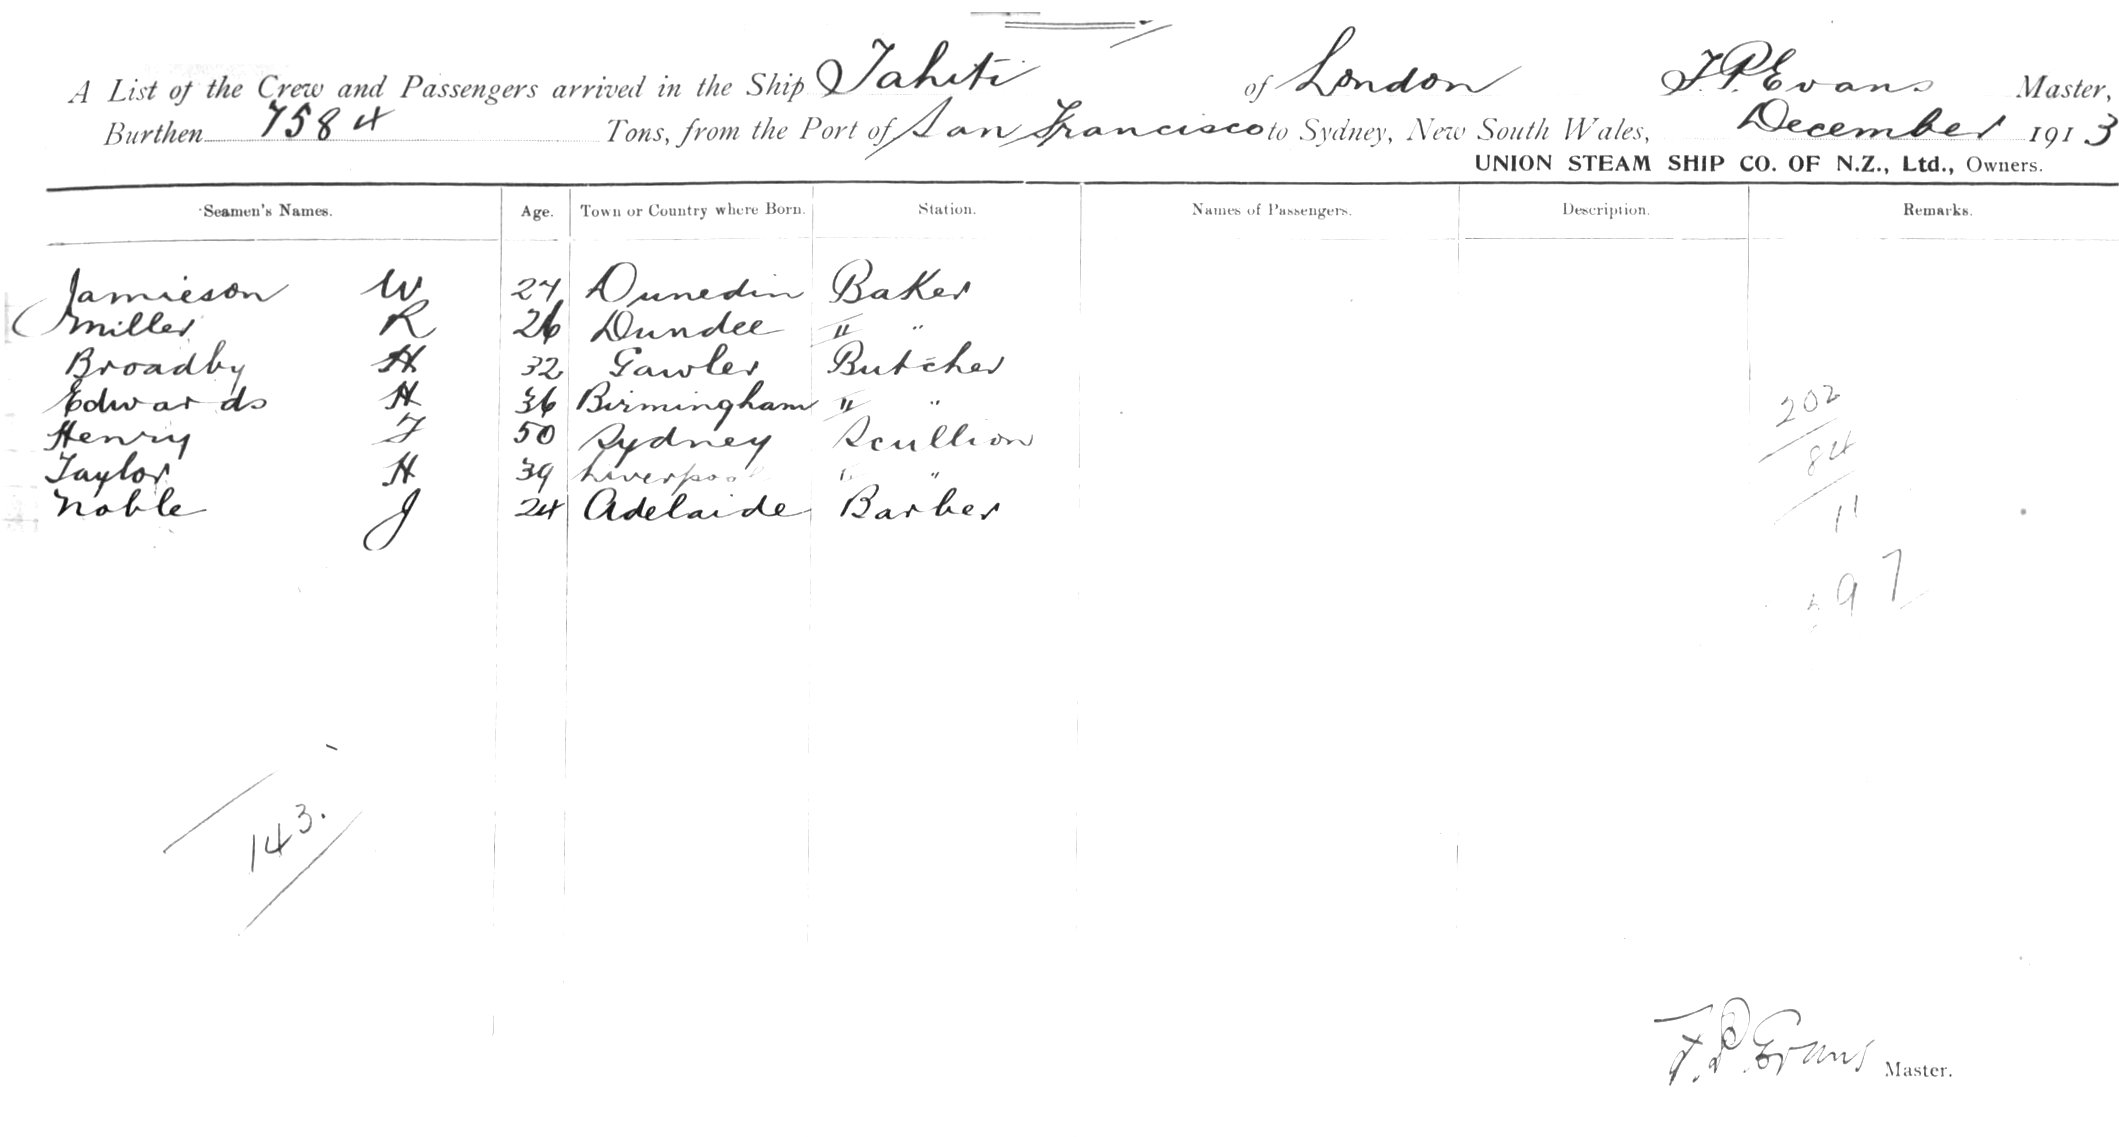 A List of the Crew and Passengers arrived in the Ship Tahiti of London F.P. Evans Master,
Burthen 7584 Tons, from the Port of San Francisco to Sydney, New South Wales, December 1913
UNION STEAM SHIP CO. OF N.Z., Ltd., Owners.
Seamen's Names. Age. Town or Country where Born. Station. Names of Passengers. Description. Remarks.
Jamieson W 27 Dunedin Baker
Miller R 26 Dundee " "
Broadby H 32 Gawler Butcher
Edwards H 36 Birmingham " "
Henry F 50 Sydney Scullion
Taylor H 39 Liverpool " "
Noble J 24 Adelaide Barber
202
84
11
143.
F.P. Evans Master.